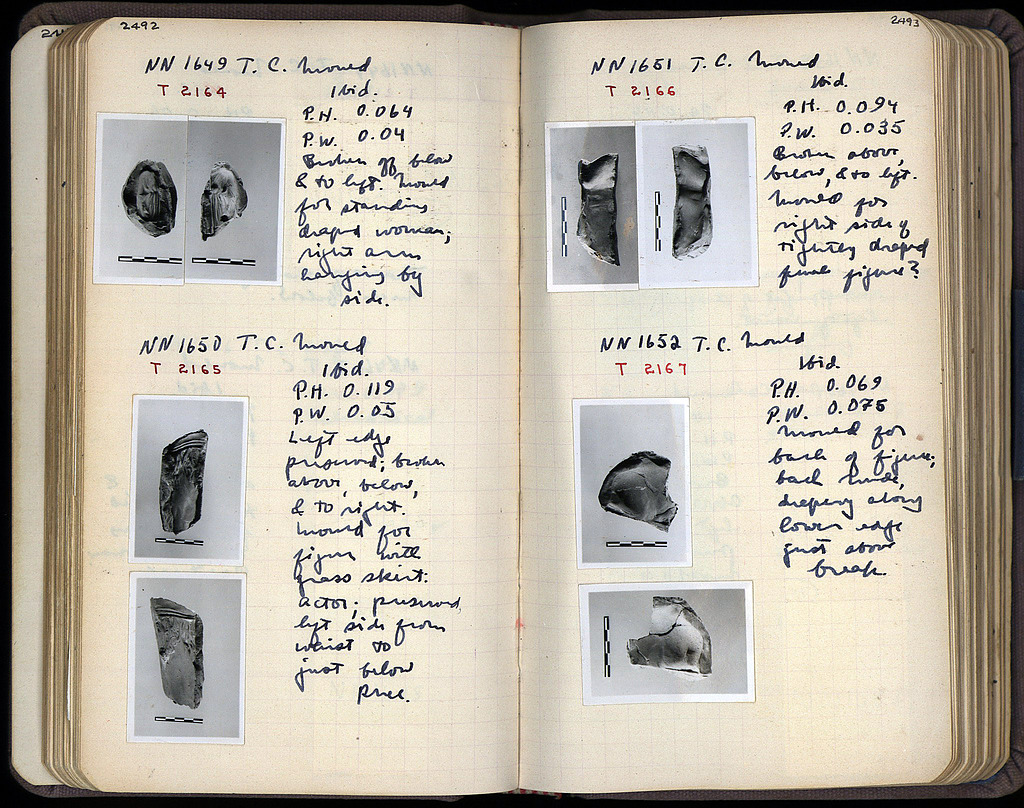 2492
NN 1649 T.C. Mould
T 2164
Ibid.
P.H. 0.064
P.W. 0.04
Broken off below
& to left. Mould
for standing
draped woman;
right arm
hanging by
side.
NN 1650 T.C. Mould
T 2165
Ibid.
P.H. 0.119
P.W. 0.05
Left edge
preserved; broken
above, below,
& to right.
Mould for
figure with
grass skirt:
actor; preserved
left side from
waist to
just below
knee.
2493
NN 1651 T.C. Mould
T 2166
Ibid.
P.H. 0.094
P.W. 0.035
Broken above,
below, & to left.
Mould for
right side of
tightly draped
female figure?
NN 1652 T.C. Mould
T 2167
Ibid.
P.H. 0.069
P.W. 0.075
Mould for
back of figure;
back nude,
drapery along
lower edge
just above
break.